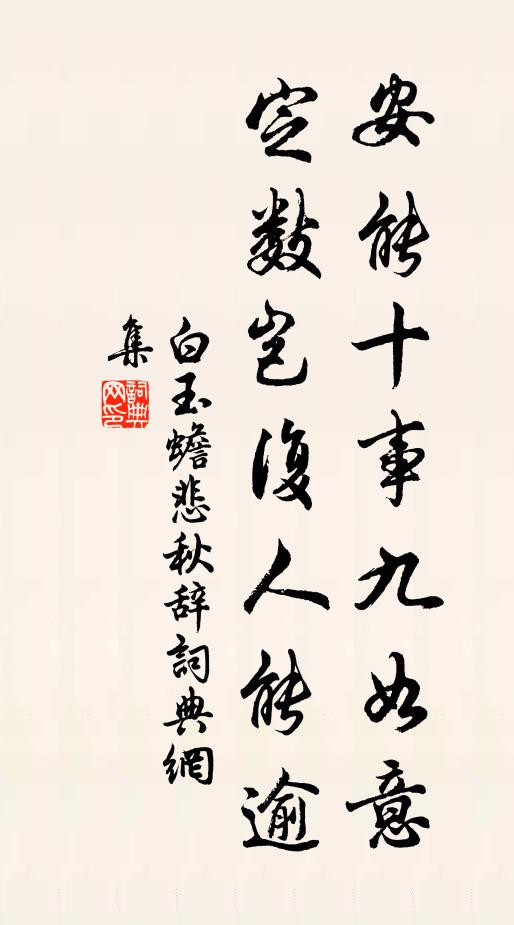 安能十事九如意
定數岂復人能逾
白玉蟾悲秋辞詞典網
集
詞典
网印